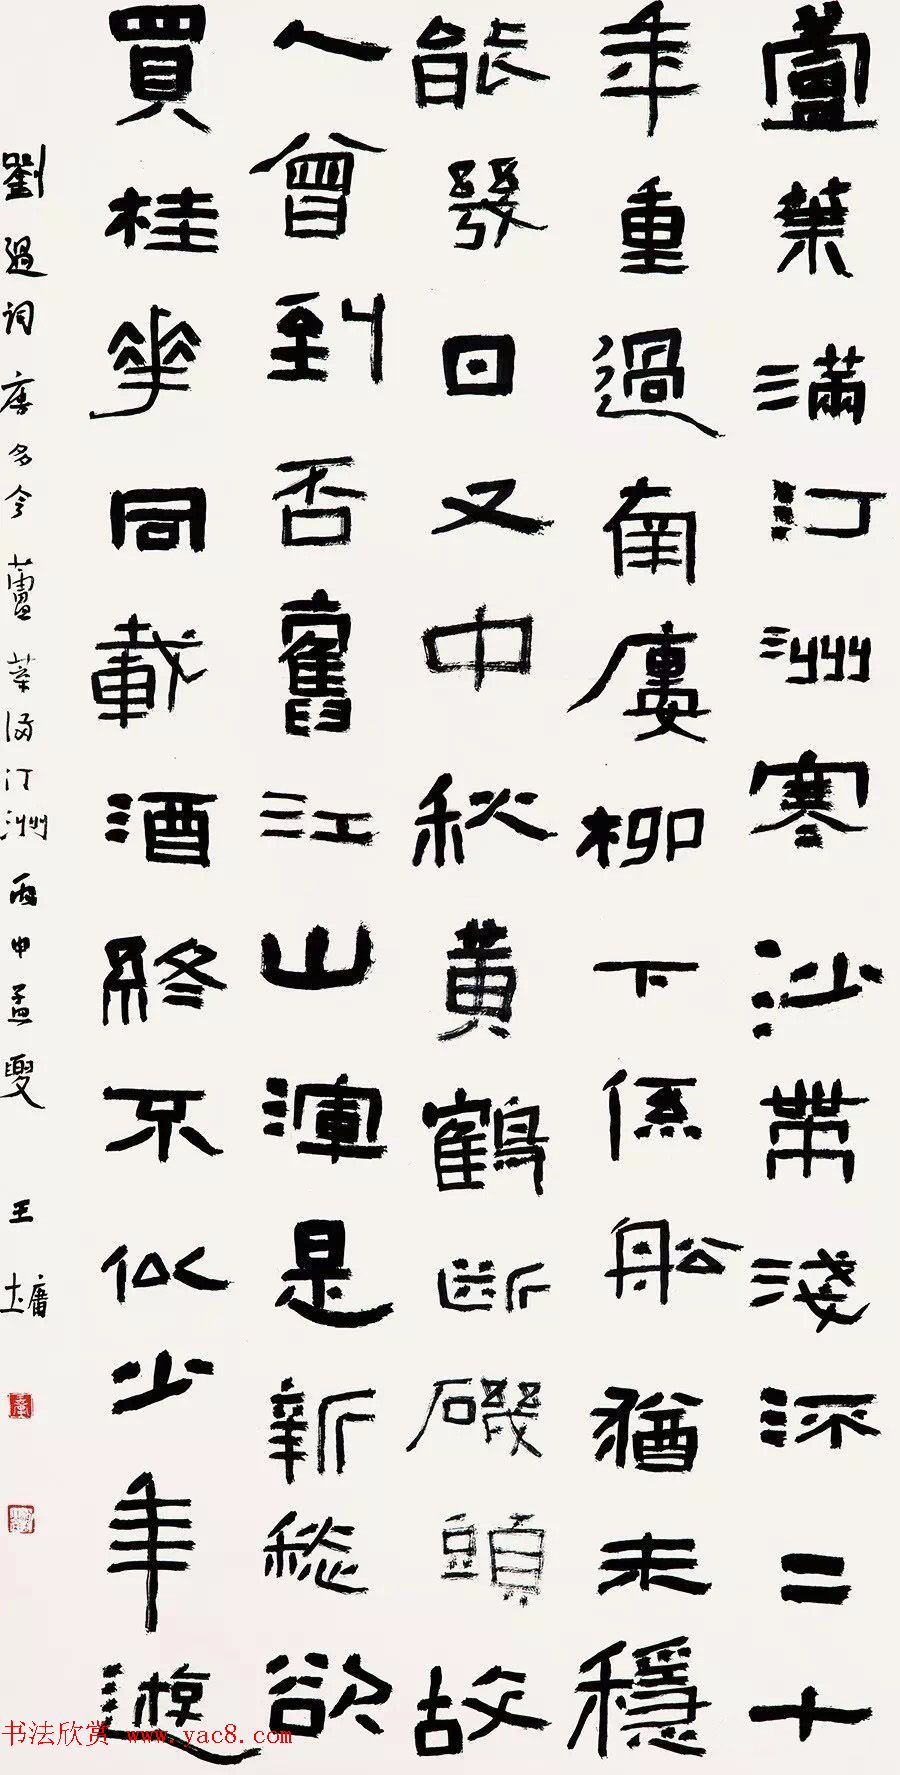 蘆葉滿汀洲寒沙帶淺流二十
年重過南廔柳下係船猶未穩
能發日又中秋黃鶴斷磯頭故
人曾到否舊江山渾是新愁欲
買桂華同載酒終不似少年遊
劉過詞唐多令蘆葉滿汀洲丙申孟夏 王墉
书法欣赏 www.yac8.com